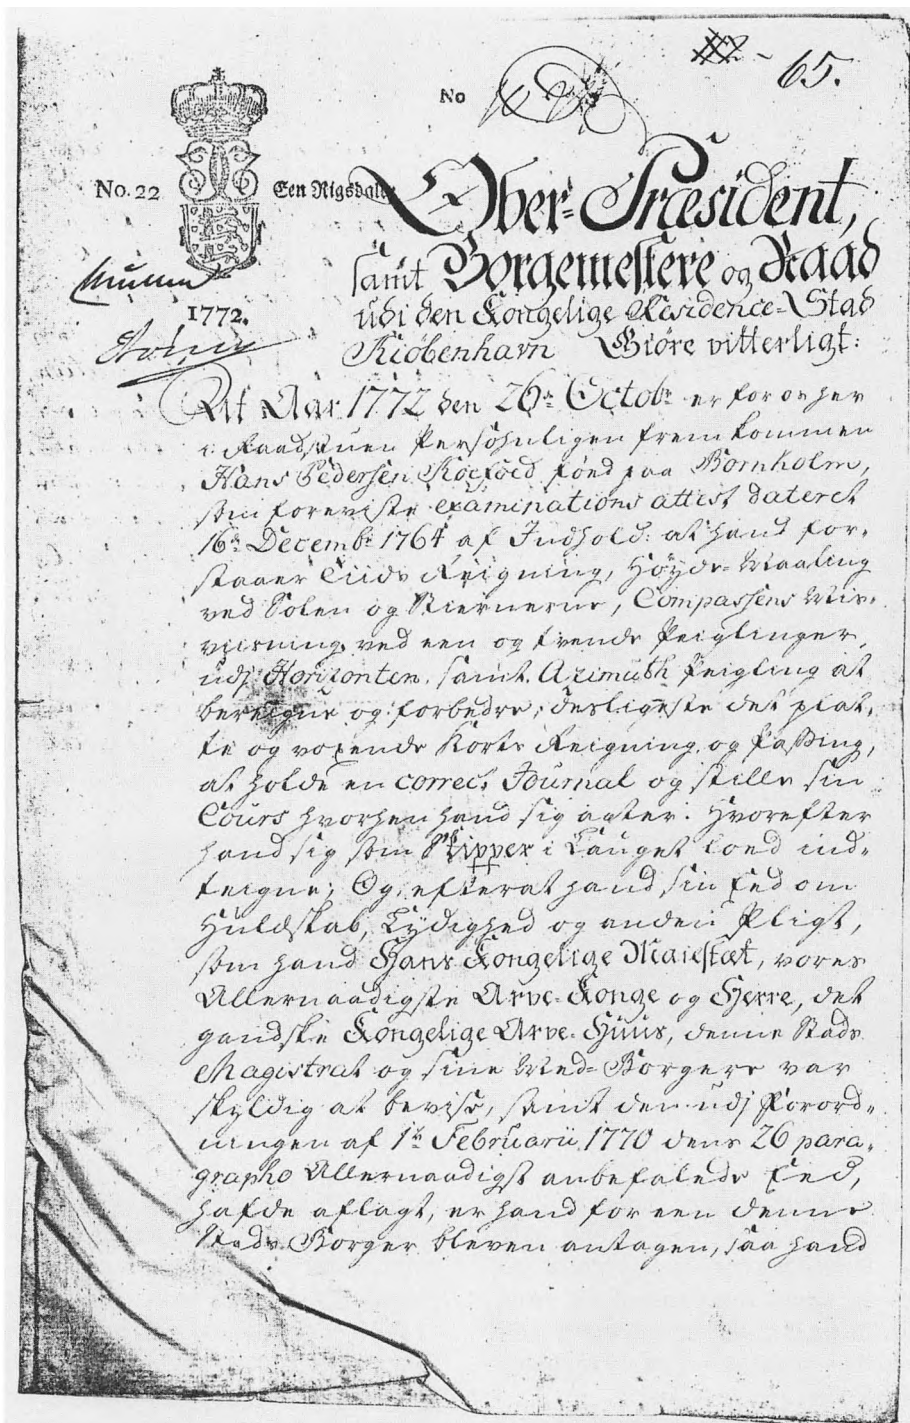 65.
No
No. 22
Een Rigsdaler
1772.
Ober=Præsident,
samt Borgemestere og Raad
udi den Kongelige Residence=Stad
Kiøbenhavn Giøre vitterligt:
At Aar 1772 den 26de Octobr er for os her
i Raadstuen Persohnligen fremkommen
Hans Pedersen Koefoed fød paa Bornholm,
som foreviste examinations attest dateret
16de Decembr 1764 af Indhold: at hand for-
staaer Tiids Reigning, Høyde=Maaling
ved Solen og Stiernerne, Compassens Mis-
viisning ved een og tvende Peiglinger
udj Horizonten, samt Azimuth Peigling at
bereigne og forbedre; desligeste det plat-
te og voxende Korts Reigning, og Passing,
at holde en correct Journal og stille sin
Cours hvorhen hand sig agter. Hvorefter
hand sig som Skipper i Lauget lod ind-
teigne; Og efterat hand sin Eed om
Huldskab, Lydighed og anden Pligt,
som hand Hans Kongelige Maiestæt, vores
Allernaadigste Arve=Konge og Herre, det
gandske Kongelige Arve=Huus, denne Stads
Magistrat og sine Med=Borgere var
skyldig at bevise, samt den udj Forord-
ningen af 1te Februarii 1770 dens 26 para-
grapho Allernaadigst anbefalede Eed,
hafde aflagt, er hand for een denne
Stads Borger bleven antagen, saa hand